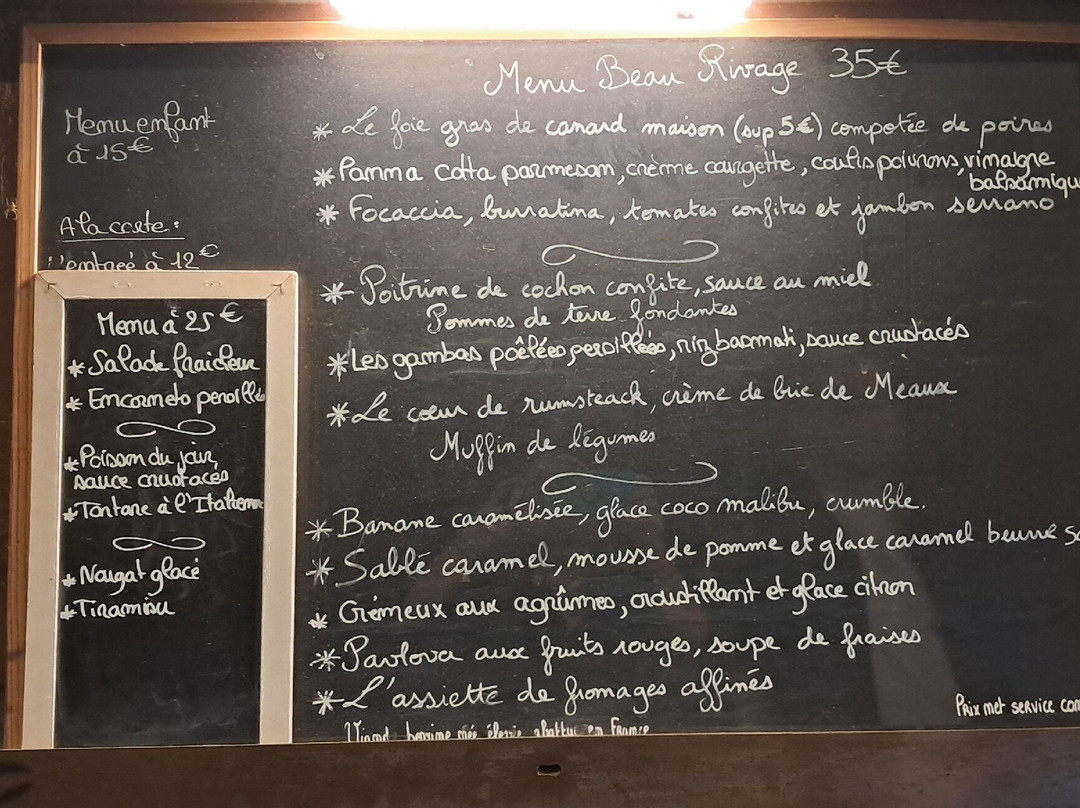 Menu Beau Rivage 35€
Menu enfant
à 15€
A la carte :
l'entreé à 12€
Menu à 25€
* Salade fraicheur
* Encornets persillés
* Poisson du jour,
sauce crustacés
* Tartare à l'Italienne
* Nougat glacé
* Tiramisu
* Le foie gras de canard maison (sup 5€) compotée de poires
* Panna cotta parmesan, crème courgette, coulis poivrons, vinaigre
balsamiqu
* Focaccia, burratina, tomates confites et jambon serrano
* Poitrine de cochon confite, sauce au miel
Pommes de terre fondantes
* Les gambas poêlées persillées, riz basmati, sauce crustacés
* Le coeur de rumsteack, crème de brie de Meaux
Muffin de légumes
* Banane caramélisée, glace coco malibu, crumble.
* Sablé caramel, mousse de pomme et glace caramel beurre
* Crémeux aux agrûmes, croustillant et glace citron
* Pavlova aux fruits rouges, soupe de fraises
* L'assiette de fromages affinés
Prix net service com
née élevée abattue en France